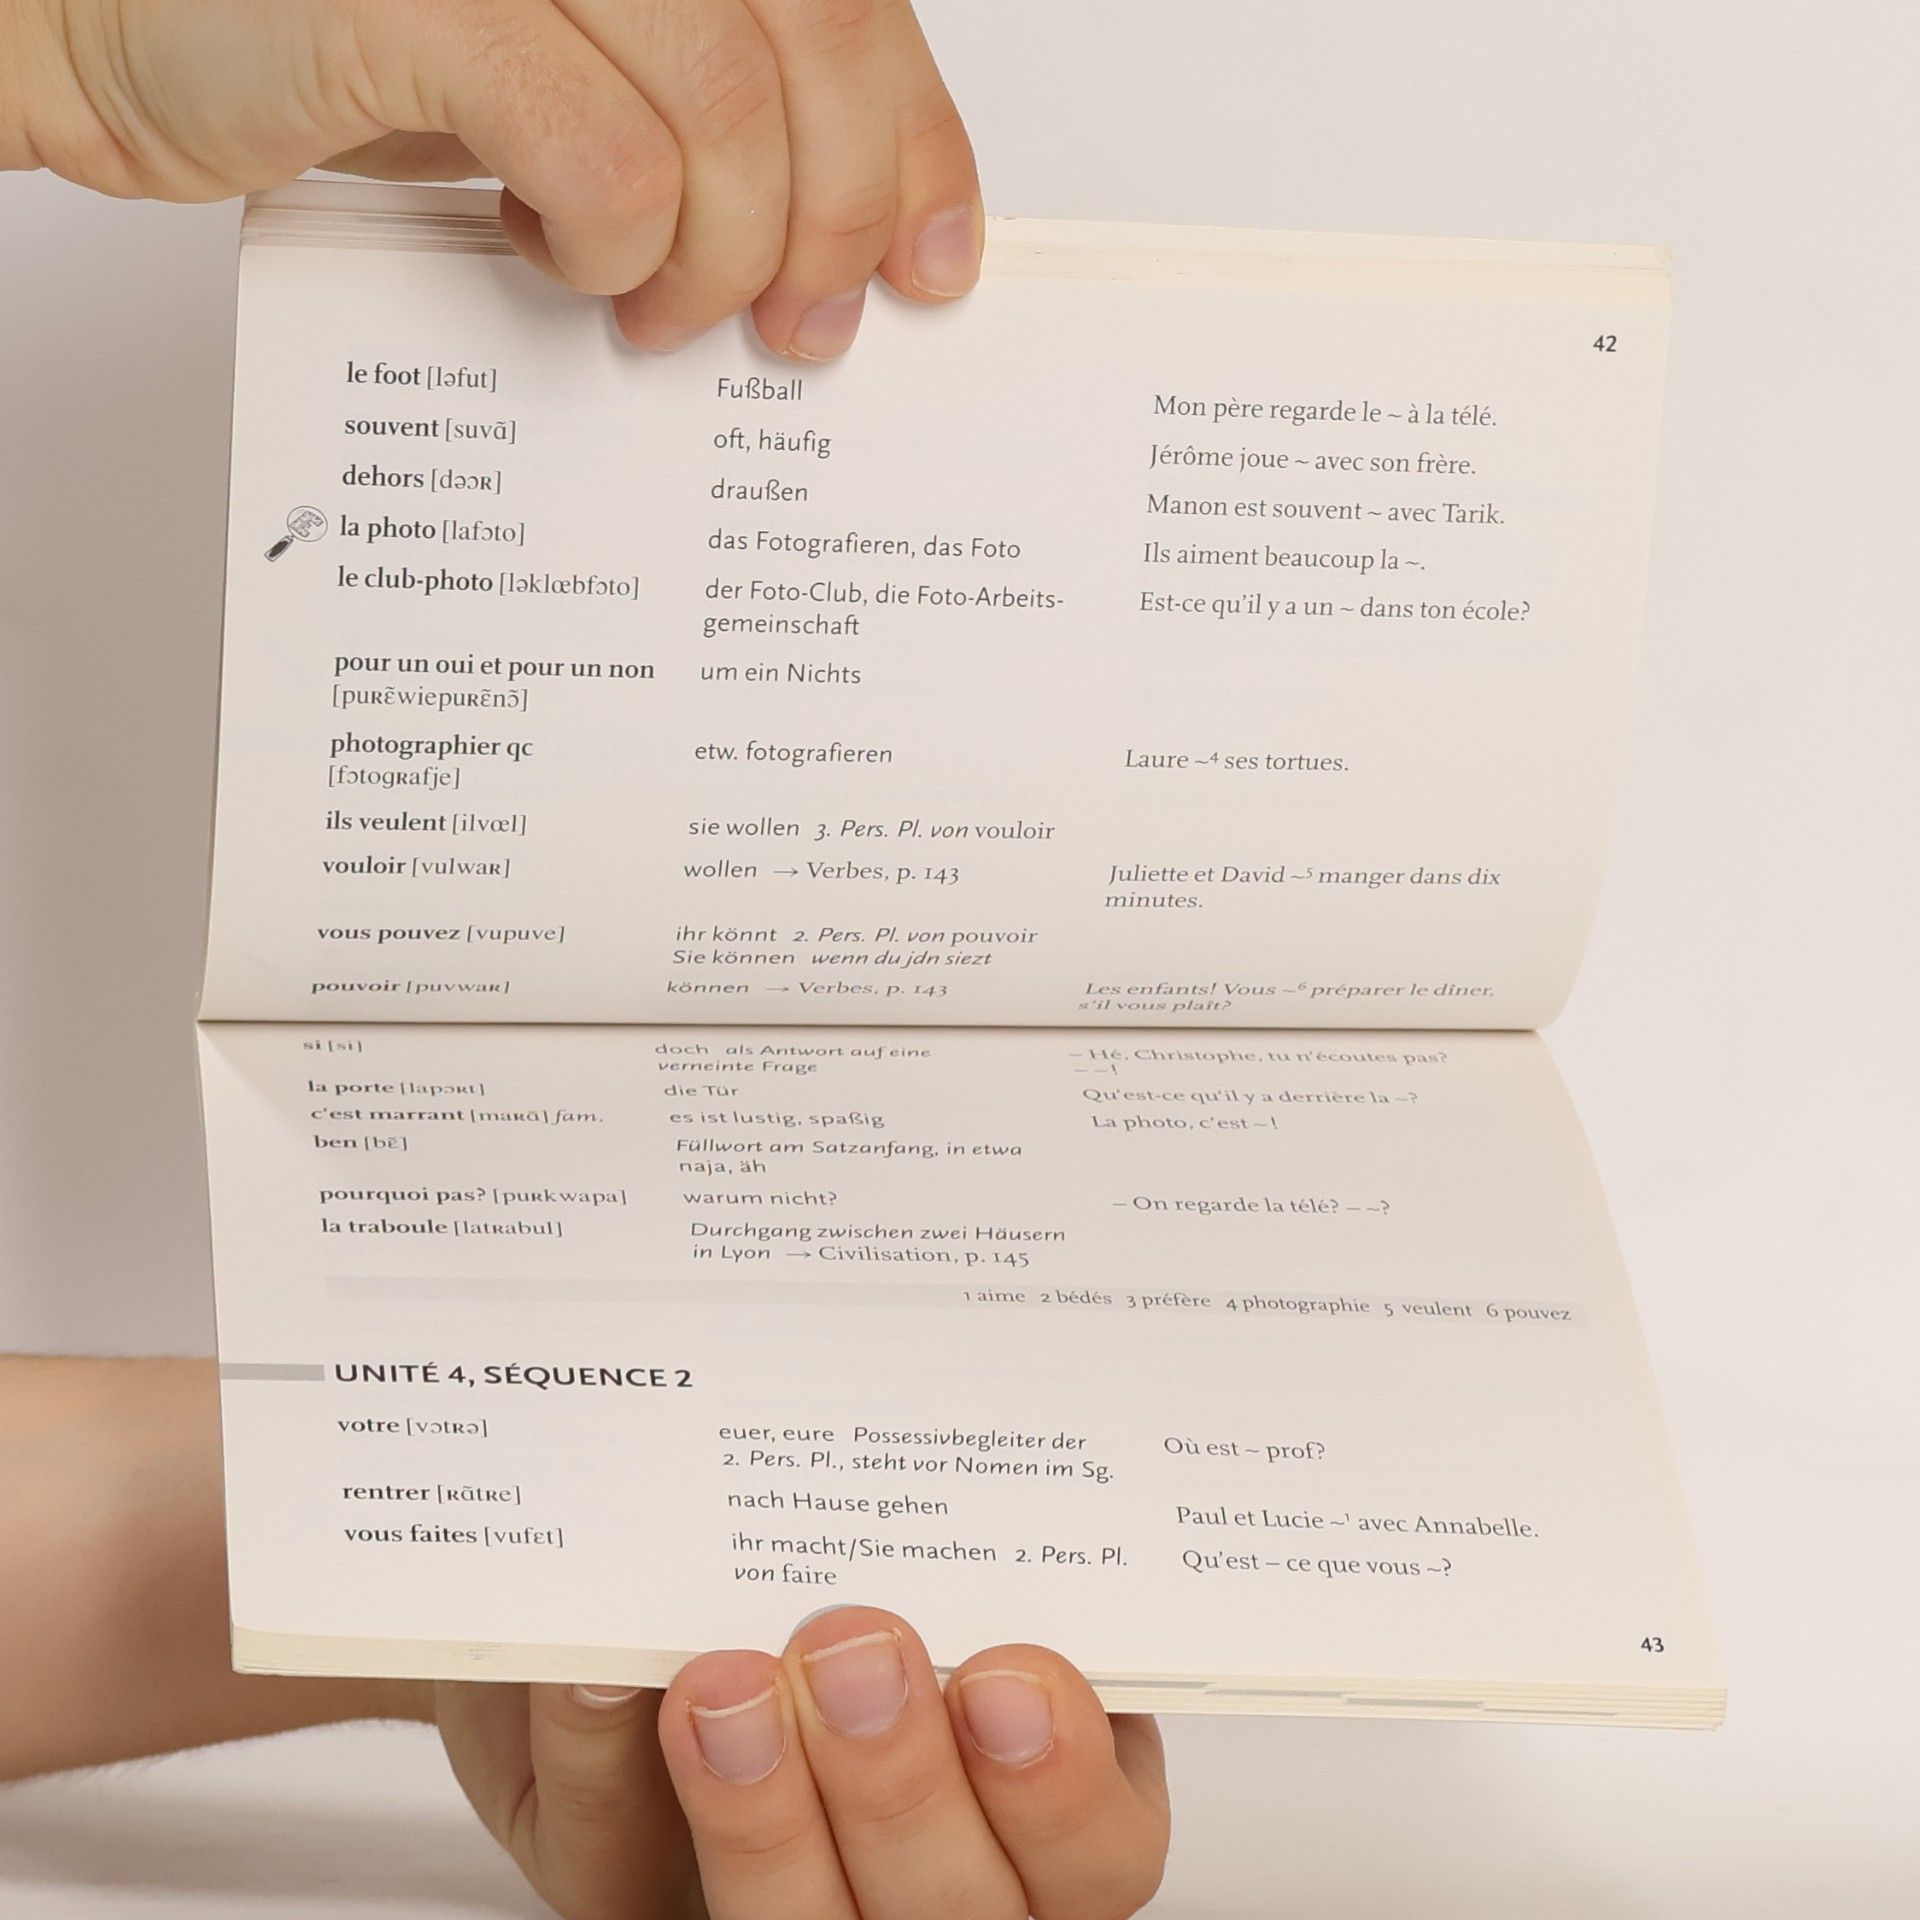 42
le foot [ləfut] Fußball Mon père regarde le ~ à la télé.
souvent [suvɑ̃] oft, häufig Jérôme joue ~ avec son frère.
dehors [dəɔʀ] draußen Manon est souvent ~ avec Tarik.
la photo [lafɔto] das Fotografieren, das Foto Ils aiment beaucoup la ~.
le club-photo [ləklœbfɔto] der Foto-Club, die Foto-Arbeits- Est-ce qu'il y a un ~ dans ton école?
gemeinschaft
pour un oui et pour un non um ein Nichts
[puʀɛ̃wiepuʀɛ̃nɔ̃]
photographier qc etw. fotografieren Laure ~⁴ ses tortues.
[fɔtogʀafje]
ils veulent [ilvœl] sie wollen 3. Pers. Pl. von vouloir
vouloir [vulwaʀ] wollen → Verbes, p. 143 Juliette et David ~⁵ manger dans dix
minutes.
vous pouvez [vupuve] ihr könnt 2. Pers. Pl. von pouvoir
Sie können wenn du jdn siezt
pouvoir [puvwaʀ] können → Verbes, p. 143 Les enfants! Vous ~⁶ préparer le dîner,
s'il vous plaît?
si [si] doch als Antwort auf eine – Hé, Christophe, tu n'écoutes pas?
verneinte Frage – ~!
la porte [lapɔʀt] die Tür Qu'est-ce qu'il y a derrière la ~?
c'est marrant [maʀɑ̃] fam. es ist lustig, spaßig La photo, c'est ~!
ben [bɛ̃] Füllwort am Satzanfang, in etwa
naja, äh
pourquoi pas? [puʀkwapa] warum nicht? – On regarde la télé? – ~?
la traboule [latʀabul] Durchgang zwischen zwei Häusern
in Lyon → Civilisation, p. 145
1 aime 2 bédés 3 préfère 4 photographie 5 veulent 6 pouvez
UNITÉ 4, SÉQUENCE 2
votre [vɔtʀə] euer, eure Possessivbegleiter der Où est ~ prof?
2. Pers. Pl., steht vor Nomen im Sg.
rentrer [ʀɑ̃tʀe] nach Hause gehen Paul et Lucie ~¹ avec Annabelle.
vous faites [vufɛt] ihr macht/Sie machen 2. Pers. Pl. Qu'est – ce que vous ~?
von faire
43